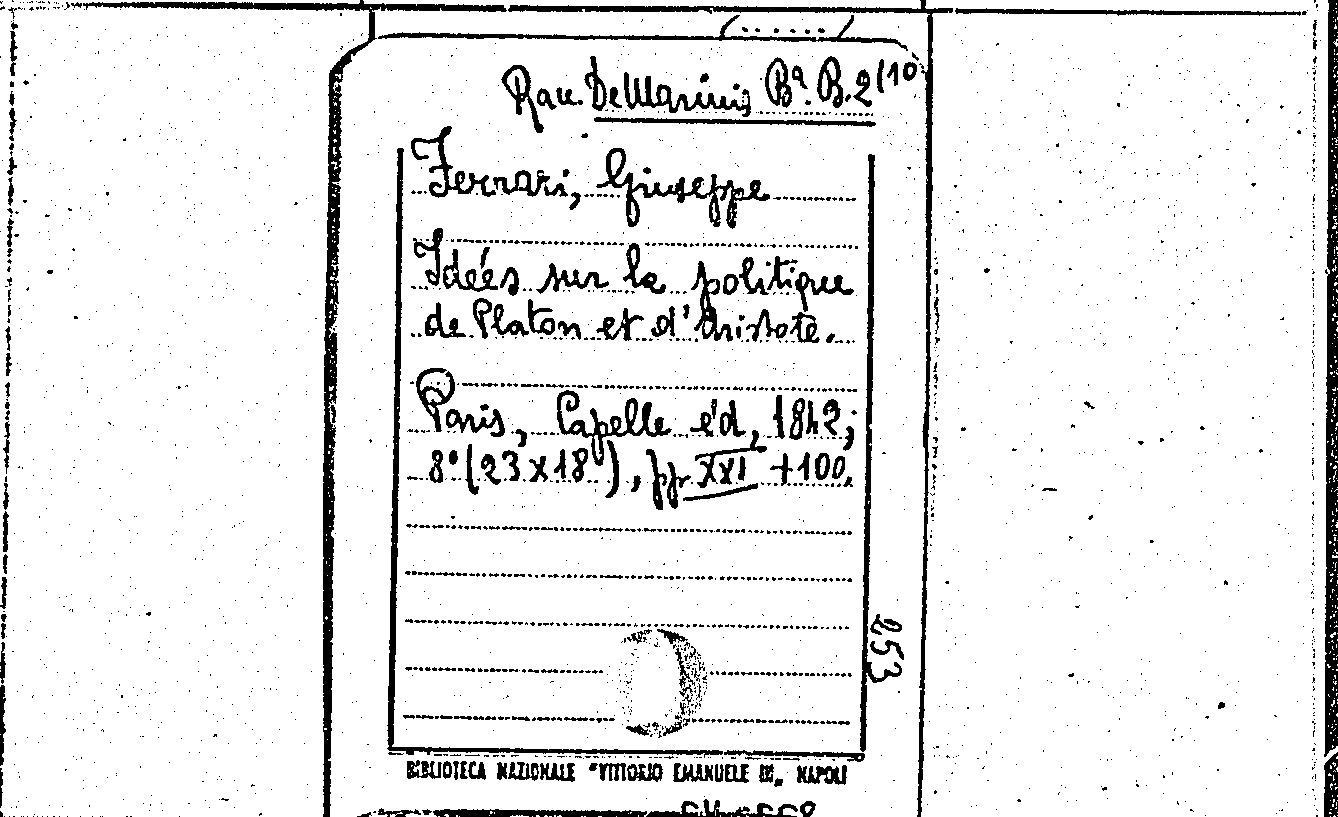 Racc. De Marinis Bª. B.2(10
Ferrari, Giuseppe
Idées sur la politique
de Platon et d'Aristote.
Paris, Capelle éd, 1842;
8° (23x18), pp. XXI +100.
253
BIBLIOTECA NAZIONALE "VITTORIO EMANUELE III„ NAPOLI